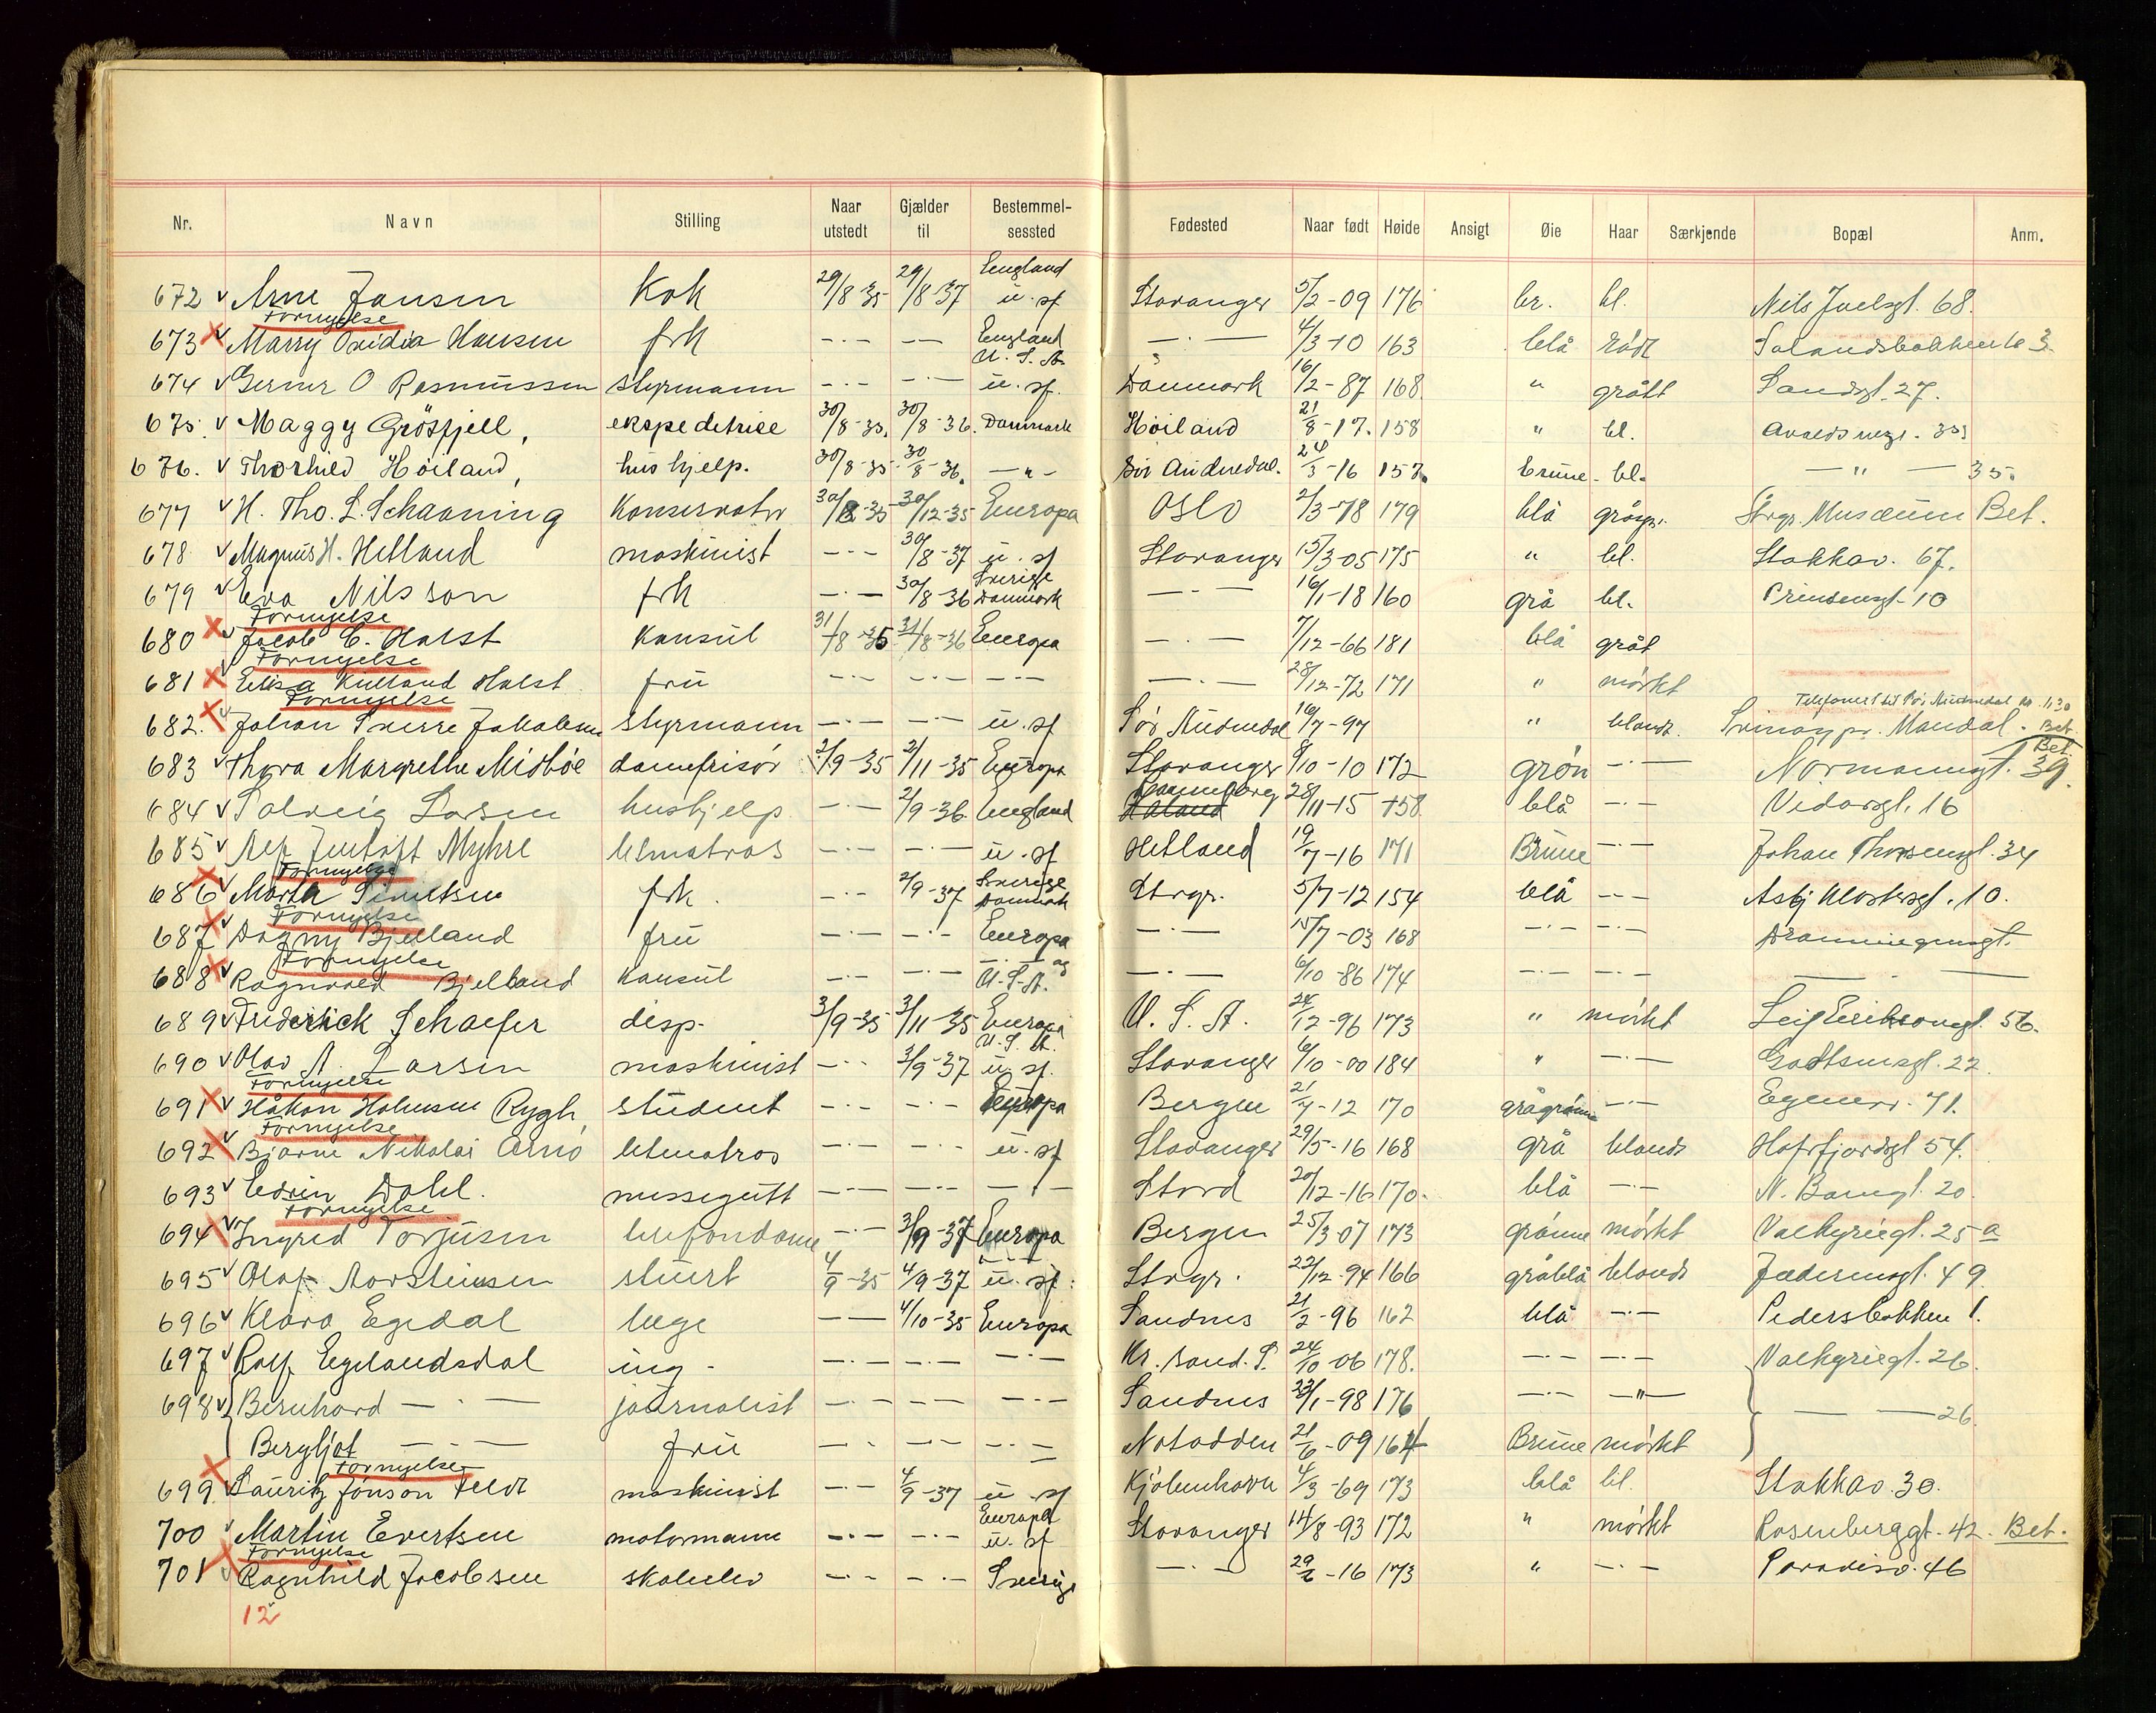 Nr. Navn Stilling Naar utstedt Gjælder til Bestemmelsessted Fødested Naar født Høide Ansigt Øie Haar Særkjende Bopæl Anm.
672 v Arne Jansen Kok 29/8-35 29/8-37 England u. sf Stavanger 5/2-09 176 br. bl. Nils Juelsgt. 68.
Fornyelse
673 v Marry Ovidia Hansen frk —·— —— England U.S.A. —·— 4/3-10 163 blå rödt
674 v Gerner O Rasmussen styrmann —·— —·— u. sf. Danmark 16/2-87 168 " grått Sandsgt. 27.
675. v Maggy Grösfjell, ekspeditrise 30/8-35. 30/8-36. Danmark Höiland 21/8-17. 158 " bl.
676. v Thorhild Höiland, hushjelp. 30/8-35. 30/8-36. —"— Sör Audnedal. 24/3-16 157. brune. bl. —"— 35.
677 v H. Tho. L. Schaaning Konservator 30/8-35 30/12-35 Europa Oslo 2/3-78 179 blå Stvgr. Musæum Bet.
678 v Magnus H. Hetland maskinist —-— 30/8-37 u. sf Stavanger 15/3-05 175 " bl. Stokkav. 67.
679 v Eva Nilsson frk —·— 30/8-36 Sverige Danmark —·— 16/1-18 160 grå bl. Prinsensgt. 10
Fornyelse
680 v Jacob C. Holst Konsul 31/8-35 31/8-36 Europa —·— 7/12-66 181 blå gråt
Fornyelse
681 v Elisa Kielland Holst fru —·— —·— —·— —·— 28/12-72 171 " mörkt
Fornyelse
682. v Johan Sverre Jakobsen styrmann —·— —·— u. sf Sör Audnedal 16/7-97 " blandt. Mandal. Bet.
683 v Thora Margrethe Midböe damefrisör 2/9-35 2/11-35 Europa Stavanger 8/10-10 172 grön —·— Normannsgt. 39. Bet.
684 v Solveig Larsen hushjelp —·— 2/9-36. England 28/11-15 158. blå —·— Vidarsgt. 16
685 v Alf Jentoft Myhre letmatros —·— —·— u. sf Hetland 19/7-16 171 Brune —·— Johan Thorsensgt. 34
Fornyelse
686 v Marta frk. —·— 2/9-37 Sverige Danmark Stvgr. 5/7-12 154 blå —-— Asbj Klostersgt. 10.
Fornyelse
687 v Dagny Bjelland fru —·— —·— Europa —·— 15/7-03 168 —·— —·—
Fornyelse
688 v Ragnvald Bjelland konsul —·— —·— —·— og U.S.A. —·— 6/10-86 174 —·— —·— —·—
689 v Frederick Schaefer disp. 3/9-35 3/11-35 Europa U.S.A. 24/12-96 173 " mörkt Leif Eriksonsgt. 56.
690 v Olav A. Larsen maskinist —·— 3/9-37 U.S.A. u. sf. Stavanger 6/10-00 184 " —·—
Fornyelse
691 v Håkon Holmsen Rygh, student —·— —·— Europa Bergen 21/7-12 170 grågrönne —·— Egenesv. 71.
Fornyelse
692 v Bjarne Nikolai Arnö letmatros —·— —·— u. sf Stavanger 29/5-16 168 grå blandt Hafrsfjordsgt 54.
693 v Edvin Dahl. messegutt —·— —·— —·— Stord 20/12-16 170. blå —·— N. Bangt. 20.
Fornyelse
694 v Ingrid Torjusen telefondame —·— 3/9-37 Europa Bergen 25/3-07 173 grönne mörkt Valkyriegt. 25 a
695 v Olaf Aorsteinsen stuert 4/9-35 4/9-37 u. sf. Stvgr. 22/12-94 166 gråblå blandt Jædermsgt. 49.
696 v Klara Egedal lege —— 4/10-35 Europa Sandnes 21/2-96 162 blå —·— Pedersbakken 1.
697 v Rolf Egelandsdal ing. —·— —·— —·— Kr. sand. S. 24/10-06 178. —·— —·— Valkyriegt. 26.
698 v Bernhard —·— journalist —·— —·— —·— Sandnes 23/1-98 176 —·— —"— —— 26.
Bergljot —·— fru —·— —·— —·— Notodden 21/6-09 164 Brune mörkt
Fornyelse
699 v Lauritz Jönson Feldt maskinist —·— 4/9-37 u. sf Kjöbenhavn 4/3-69 173 blå bl. Stokkav. 30.
700 v Martin Evertsen motormann —·— —·— Europa u. sf Stavanger 14/8-93 172 " mörkt Rosenberggt. 42. Bet.
Fornyelse
701 v Ragnhild Jacobsen skoleelev —·— —·— Sverige —·— 29/6-16 173 " —·— Paradisv. 46
12